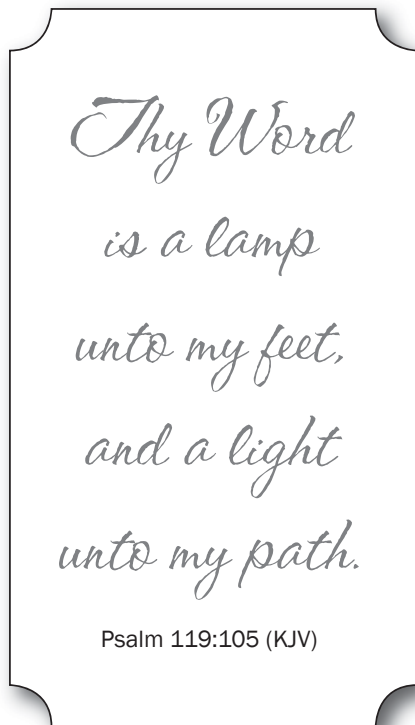 Thy Word
is a lamp
unto my feet,
and a light
unto my path.
Psalm 119:105 (KJV)